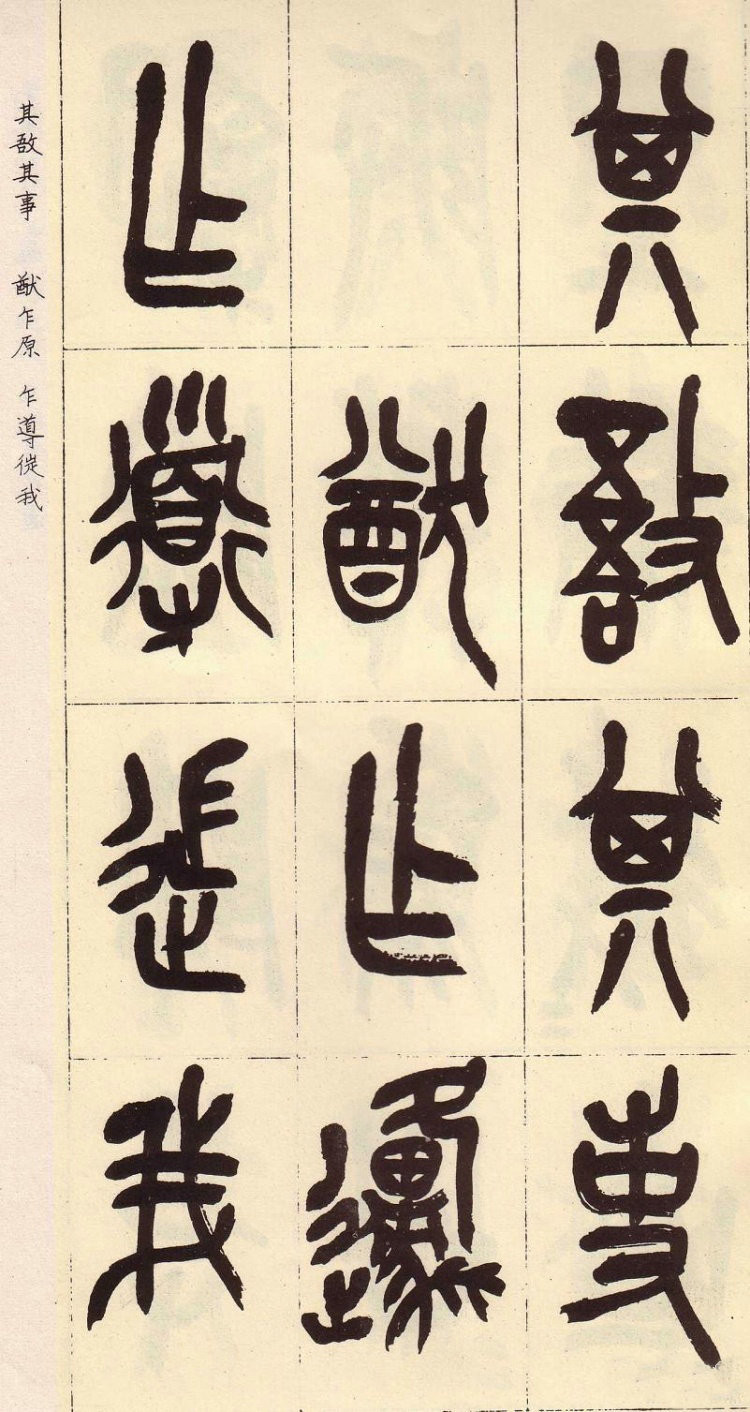 其敔其事
猷乍原
乍導迮我
其敔其事 猷乍原 乍導從我